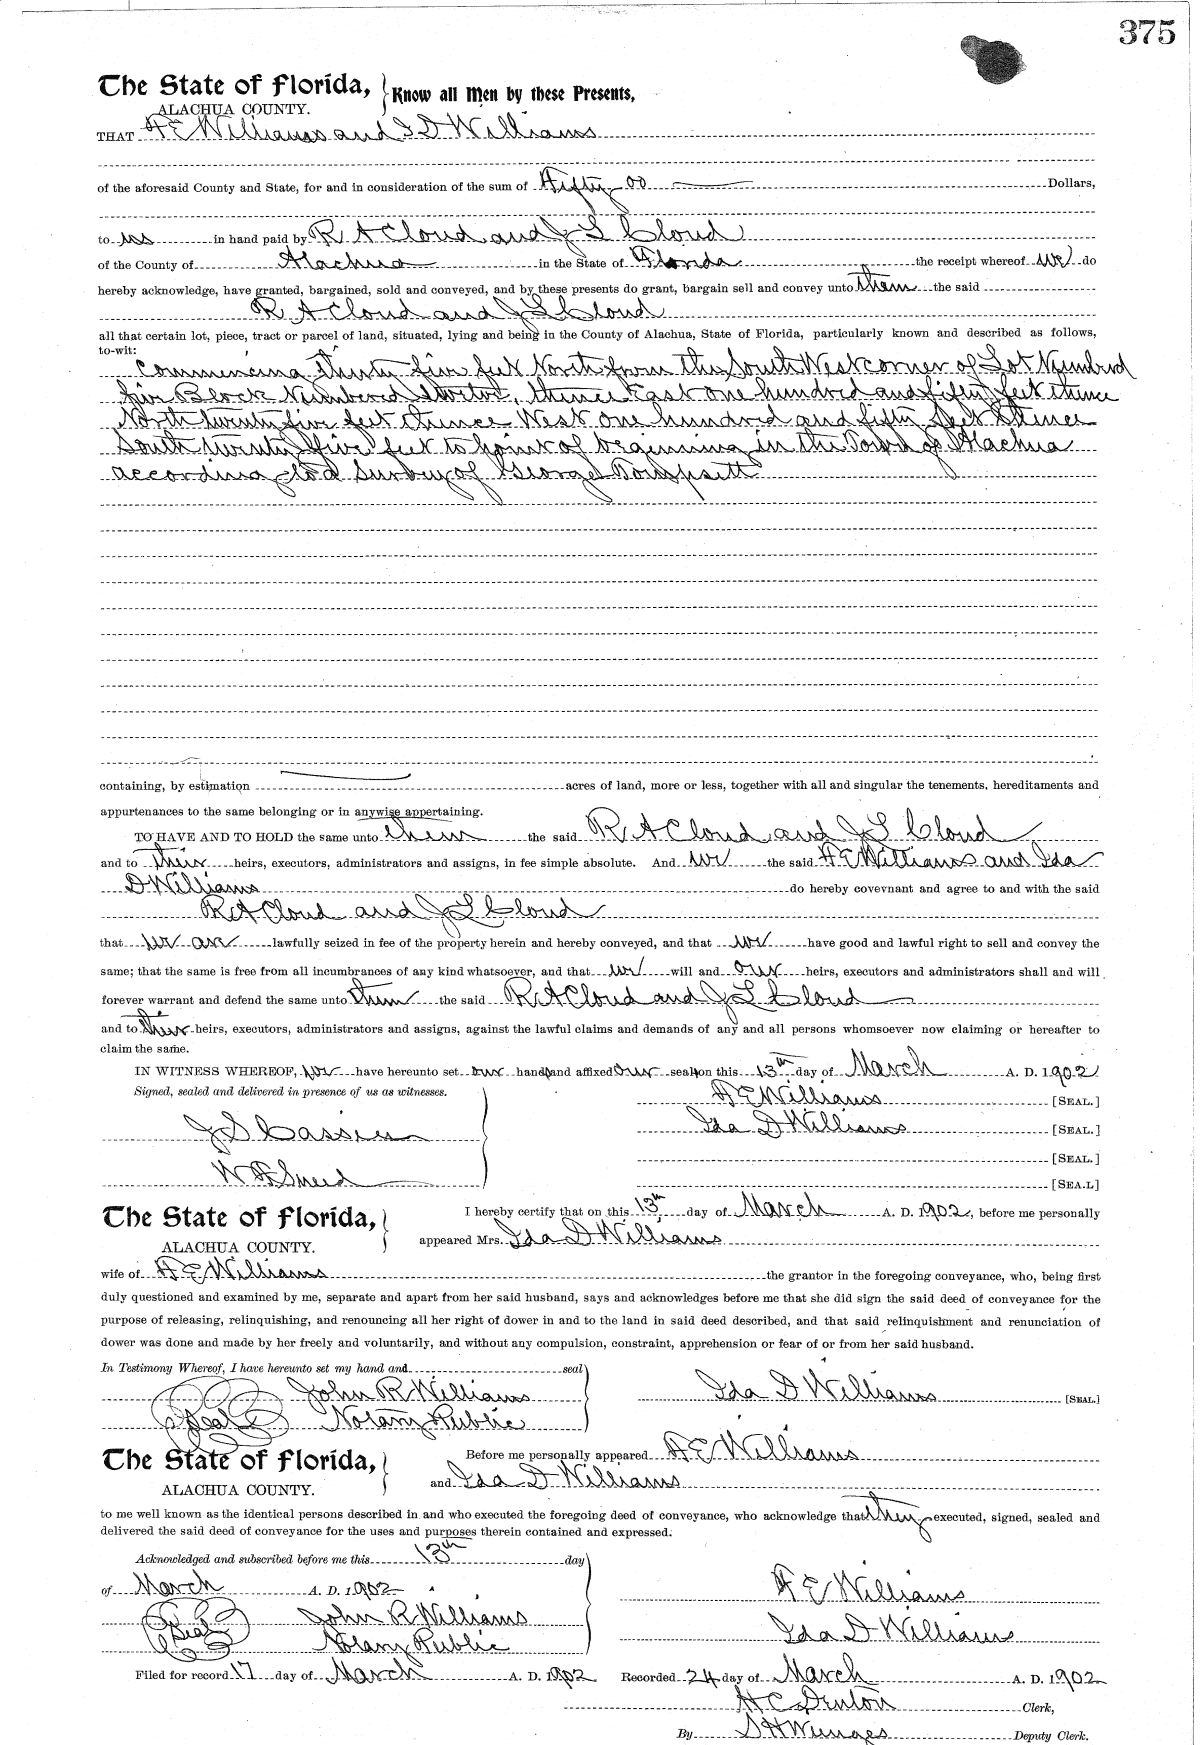 375
The State of Florida, Know all Men by these Presents,
ALACHUA COUNTY.
THAT A E Williams and I D Williams
of the aforesaid County and State, for and in consideration of the sum of Fifty 00 Dollars,
to us in hand paid by R A Cloud and J L Cloud
of the County of Alachua in the State of Florida the receipt whereof we do
hereby acknowledge, have granted, bargained, sold and conveyed, and by these presents do grant, bargain sell and convey unto them the said
R A Cloud and J L Cloud
all that certain lot, piece, tract or parcel of land, situated, lying and being in the County of Alachua, State of Florida, particularly known and described as follows,
to-wit:
Commencing thirty five feet North from the South West corner of Lot Numbered
five Block Numbered thence East one hundred and fifty feet thence
North twenty five feet thence West one hundred and fifty feet thence
South twenty five feet to point of beginning in the Town of Alachua
according to a Survey of George
containing, by estimation acres of land, more or less, together with all and singular the tenements, hereditaments and
appurtenances to the same belonging or in anywise appertaining.
TO HAVE AND TO HOLD the same unto them the said R A Cloud and J L Cloud
and to their heirs, executors, administrators and assigns, in fee simple absolute. And we the said A E Williams and Ida
D Williams do hereby covevnant and agree to and with the said
R A Cloud and J L Cloud
that we are lawfully seized in fee of the property herein and hereby conveyed, and that we have good and lawful right to sell and convey the
same; that the same is free from all incumbrances of any kind whatsoever, and that we will and our heirs, executors and administrators shall and will
forever warrant and defend the same unto them the said R A Cloud and J L Cloud
and to their heirs, executors, administrators and assigns, against the lawful claims and demands of any and all persons whomsoever now claiming or hereafter to
claim the same.
IN WITNESS WHEREOF, we have hereunto set our hands and affixed our seals on this 13th day of March A. D. 1902
Signed, sealed and delivered in presence of us as witnesses. A E Williams [SEAL.]
J S Ida D Williams [SEAL.]
[SEAL.]
W F Sneed [SEA.L]
The State of Florida, I hereby certify that on this 13th day of March A. D. 1902, before me personally
ALACHUA COUNTY. appeared Mrs. Ida D Williams
wife of A E Williams the grantor in the foregoing conveyance, who, being first
duly questioned and examined by me, separate and apart from her said husband, says and acknowledges before me that she did sign the said deed of conveyance for the
purpose of releasing, relinquishing, and renouncing all her right of dower in and to the land in said deed described, and that said relinquishment and renunciation of
dower was done and made by her freely and voluntarily, and without any compulsion, constraint, apprehension or fear of or from her said husband.
In Testimony Whereof, I have hereunto set my hand and seal
John R Williams Ida D Williams [SEAL]
Seal Notary Public
The State of Florida, Before me personally appeared A E Williams
ALACHUA COUNTY. and Ida D Williams
to me well known as the identical persons described in and who executed the foregoing deed of conveyance, who acknowledge that they executed, signed, sealed and
delivered the said deed of conveyance for the uses and purposes therein contained and expressed.
Acknowledged and subscribed before me this 13th day
of March A. D. 1902 A E Williams
Seal John R Williams Ida D Williams
Notary Public
Filed for record 17 day of March A. D. 1902 Recorded 24 day of March A. D. 1902
H C Denton Clerk,
By S H Wienges Deputy Clerk.